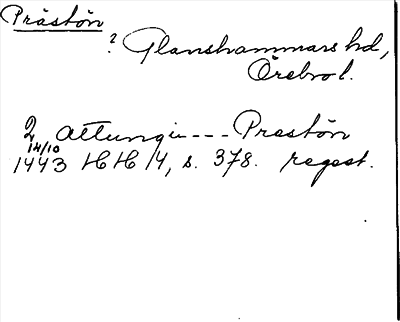 Prästön
? Glanshammars hd,
Örebro l.
2 attungü --- Prestön
14/10
1443 HH 14, s. 378. regest.